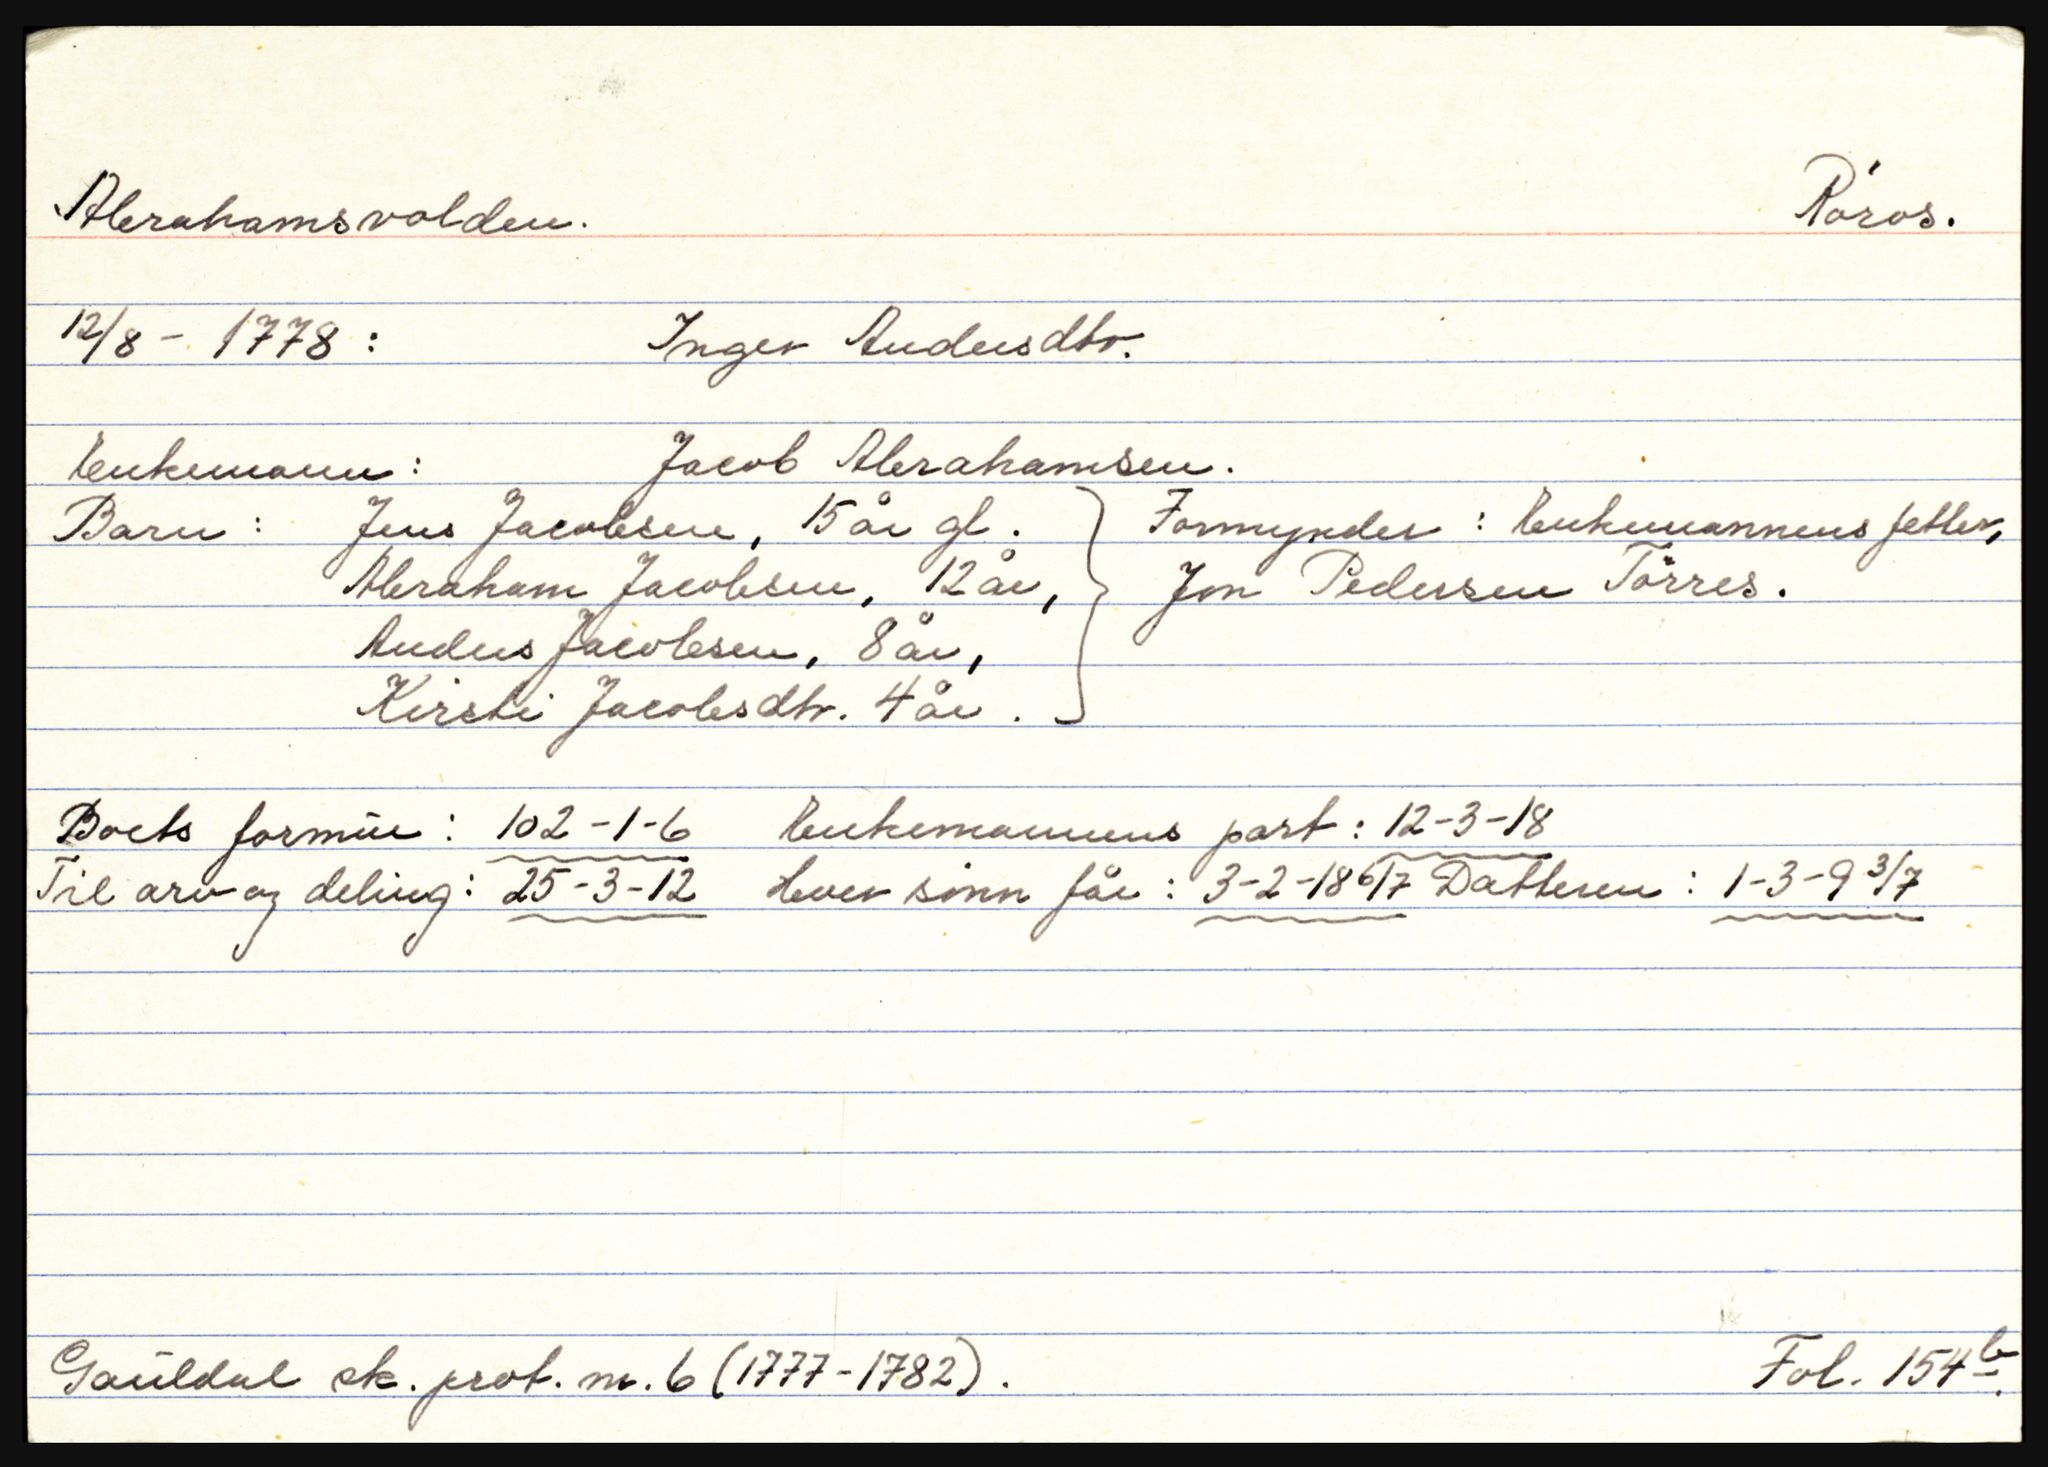 Abrahamsvolden. Röros.
12/8 - 1778: Inger Andersdtr.
Enkemann: Jacob Abrahamsen.
Barn: Jens Jacobsen, 15 år gl. } Formynder: Enkemannens fetter,
Abraham Jacobsen, 12 år, Jon Pedersen Törres.
Anders Jacobsen, 8 år,
Kirsti Jacobsdtr. 4 år.
Boets formue: 102-1-6 Enkemannens part: 12-3-18
Til arv og deling: 25-3-12 Hver sönn får: 3-2-18 6/7 Datteren: 1-3-9 3/7
Gauldal sk. prot. nr. 6 (1777-1782). Fol. 154 b.